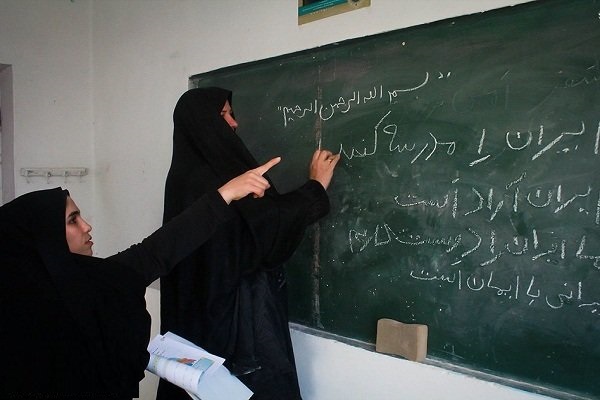 "بسم الله الرحمن الرحیم"
ایران را مدرسه
ایران آزاد است
ما ایران را دوست داریم
یرانی با ایمان است